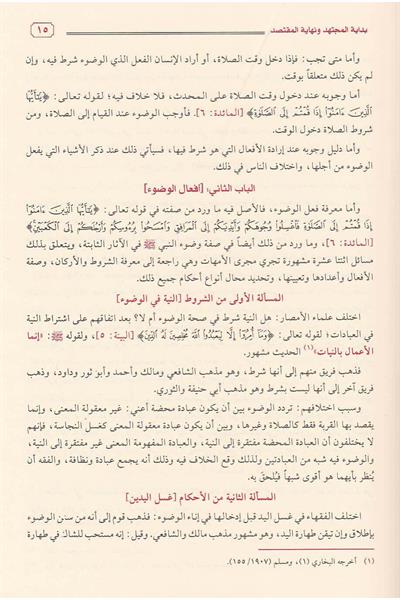 بداية المجتهد ونهاية المقتصد
١٥
وأما متى تجب: فإذا دخل وقت الصلاة، أو أراد الإنسان الفعل الذي الوضوء شرط فيه، وإن
لم يكن ذلك متعلقاً بوقت.
أما وجوبه عند دخول وقت الصلاة على المحدث، فلا خلاف فيه؛ لقوله تعالى: ﴿يَتَأَيُّهَا
الَّذِينَ ءَامَنُوٓا إِذَا قُمْتُمْ إِلَى الصَّلَوٰةِ﴾ [المائدة: ٦]. فأوجب الوضوء عند القيام إلى الصلاة، ومن
شروط الصلاة دخول الوقت.
وأما دليل وجوبه عند إرادة الأفعال التي هو شرط فيها، فسيأتي ذلك عند ذكر الأشياء التي يفعل
الوضوء من أجلها، واختلاف الناس في ذلك.
الباب الثاني: [أفعال الوضوء]
وأما معرفة فعل الوضوء، فالأصل فيه ما ورد من صفته في قوله تعالى: ﴿يَٰٓأَيُّهَا الَّذِينَ ءَامَنُوٓا
إِذَا قُمْتُمْ إِلَى الصَّلَوٰةِ فَاغْسِلُوا وُجُوهَكُمْ وَأَيْدِيَكُمْ إِلَى الْمَرَافِقِ وَامْسَحُوا بِرُءُوسِكُمْ وَأَرْجُلَكُمْ إِلَى الْكَعْبَيْنِ﴾
[المائدة: ٦]، وما ورد من ذلك أيضاً في صفة وضوء النبي ﷺ في الآثار الثابتة، ويتعلق بذلك
مسائل اثنتا عشرة مشهورة تجري مجرى الأمهات وهي راجعة إلى معرفة الشروط والأركان، وصفة
الأفعال وأعدادها وتعيينها، وتحديد محال أنواع أحكام جميع ذلك.
المسألة الأولى من الشروط [النية في الوضوء]
اختلف علماء الأمصار: هل النية شرط في صحة الوضوء أم لا؟ بعد اتفاقهم على اشتراط النية
في العبادات؛ لقوله تعالى: ﴿وَمَآ أُمِرُوٓا إِلَّا لِيَعْبُدُوا اللَّهَ مُخْلِصِينَ لَهُ الدِّينَ﴾ [البينة: ٥]، ولقوله ﷺ: «إنما
الأعمال بالنيات»(١) الحديث مشهور.
فذهب فريق منهم إلى أنها شرط، وهو مذهب الشافعي ومالك وأحمد وأبو ثور وداود، وذهب
فريق آخر إلى أنها ليست بشرط وهو مذهب أبي حنيفة والثوري.
وسبب اختلافهم: تردد الوضوء بين أن يكون عبادة محضة أعني: غير معقولة المعنى، وإنما
يقصد بها القربة فقط كالصلاة وغيرها، وبين أن يكون عبادة معقولة المعنى كغسل النجاسة، فإنهم
لا يختلفون أن العبادة المحضة مفتقرة إلى النية، والعبادة المفهومة المعنى غير مفتقرة إلى النية،
والوضوء فيه شبه من العبادتين ولذلك وقع الخلاف فيه وذلك أنه يجمع عبادة ونظافة، والفقه أن
يُنظر بأيهما هو أقوى شبهاً فيُلحق به.
المسألة الثانية من الأحكام [غسل اليدين]
اختلف الفقهاء في غسل اليد قبل إدخالها في إناء الوضوء: فذهب قوم إلى أنه من سنن الوضوء
بإطلاق وإن تيقن طهارة اليد، وهو مشهور مذهب مالك والشافعي. وقيل: إنه مستحب للشاك في طهارة
(١) أخرجه البخاري (١)، ومسلم (١٩٠٧/ ١٥٥).